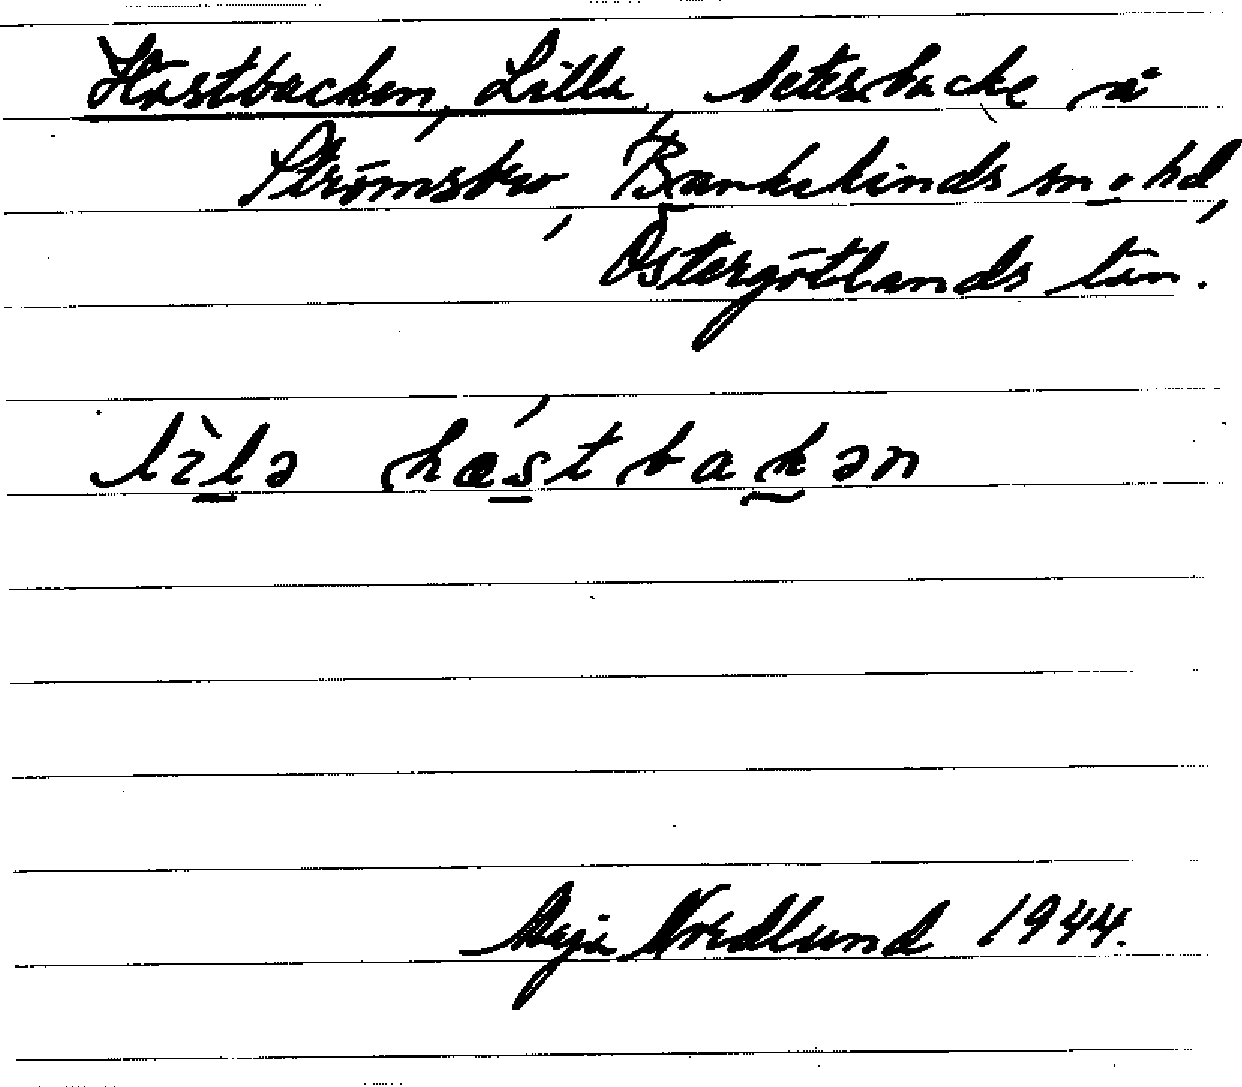 Hästbacken, Lilla, betesbacke å
Strömsbro, Bankekinds sn o hd,
Östergötlands län.
lìla hǽstbakən
Maja Nredlund 1944.